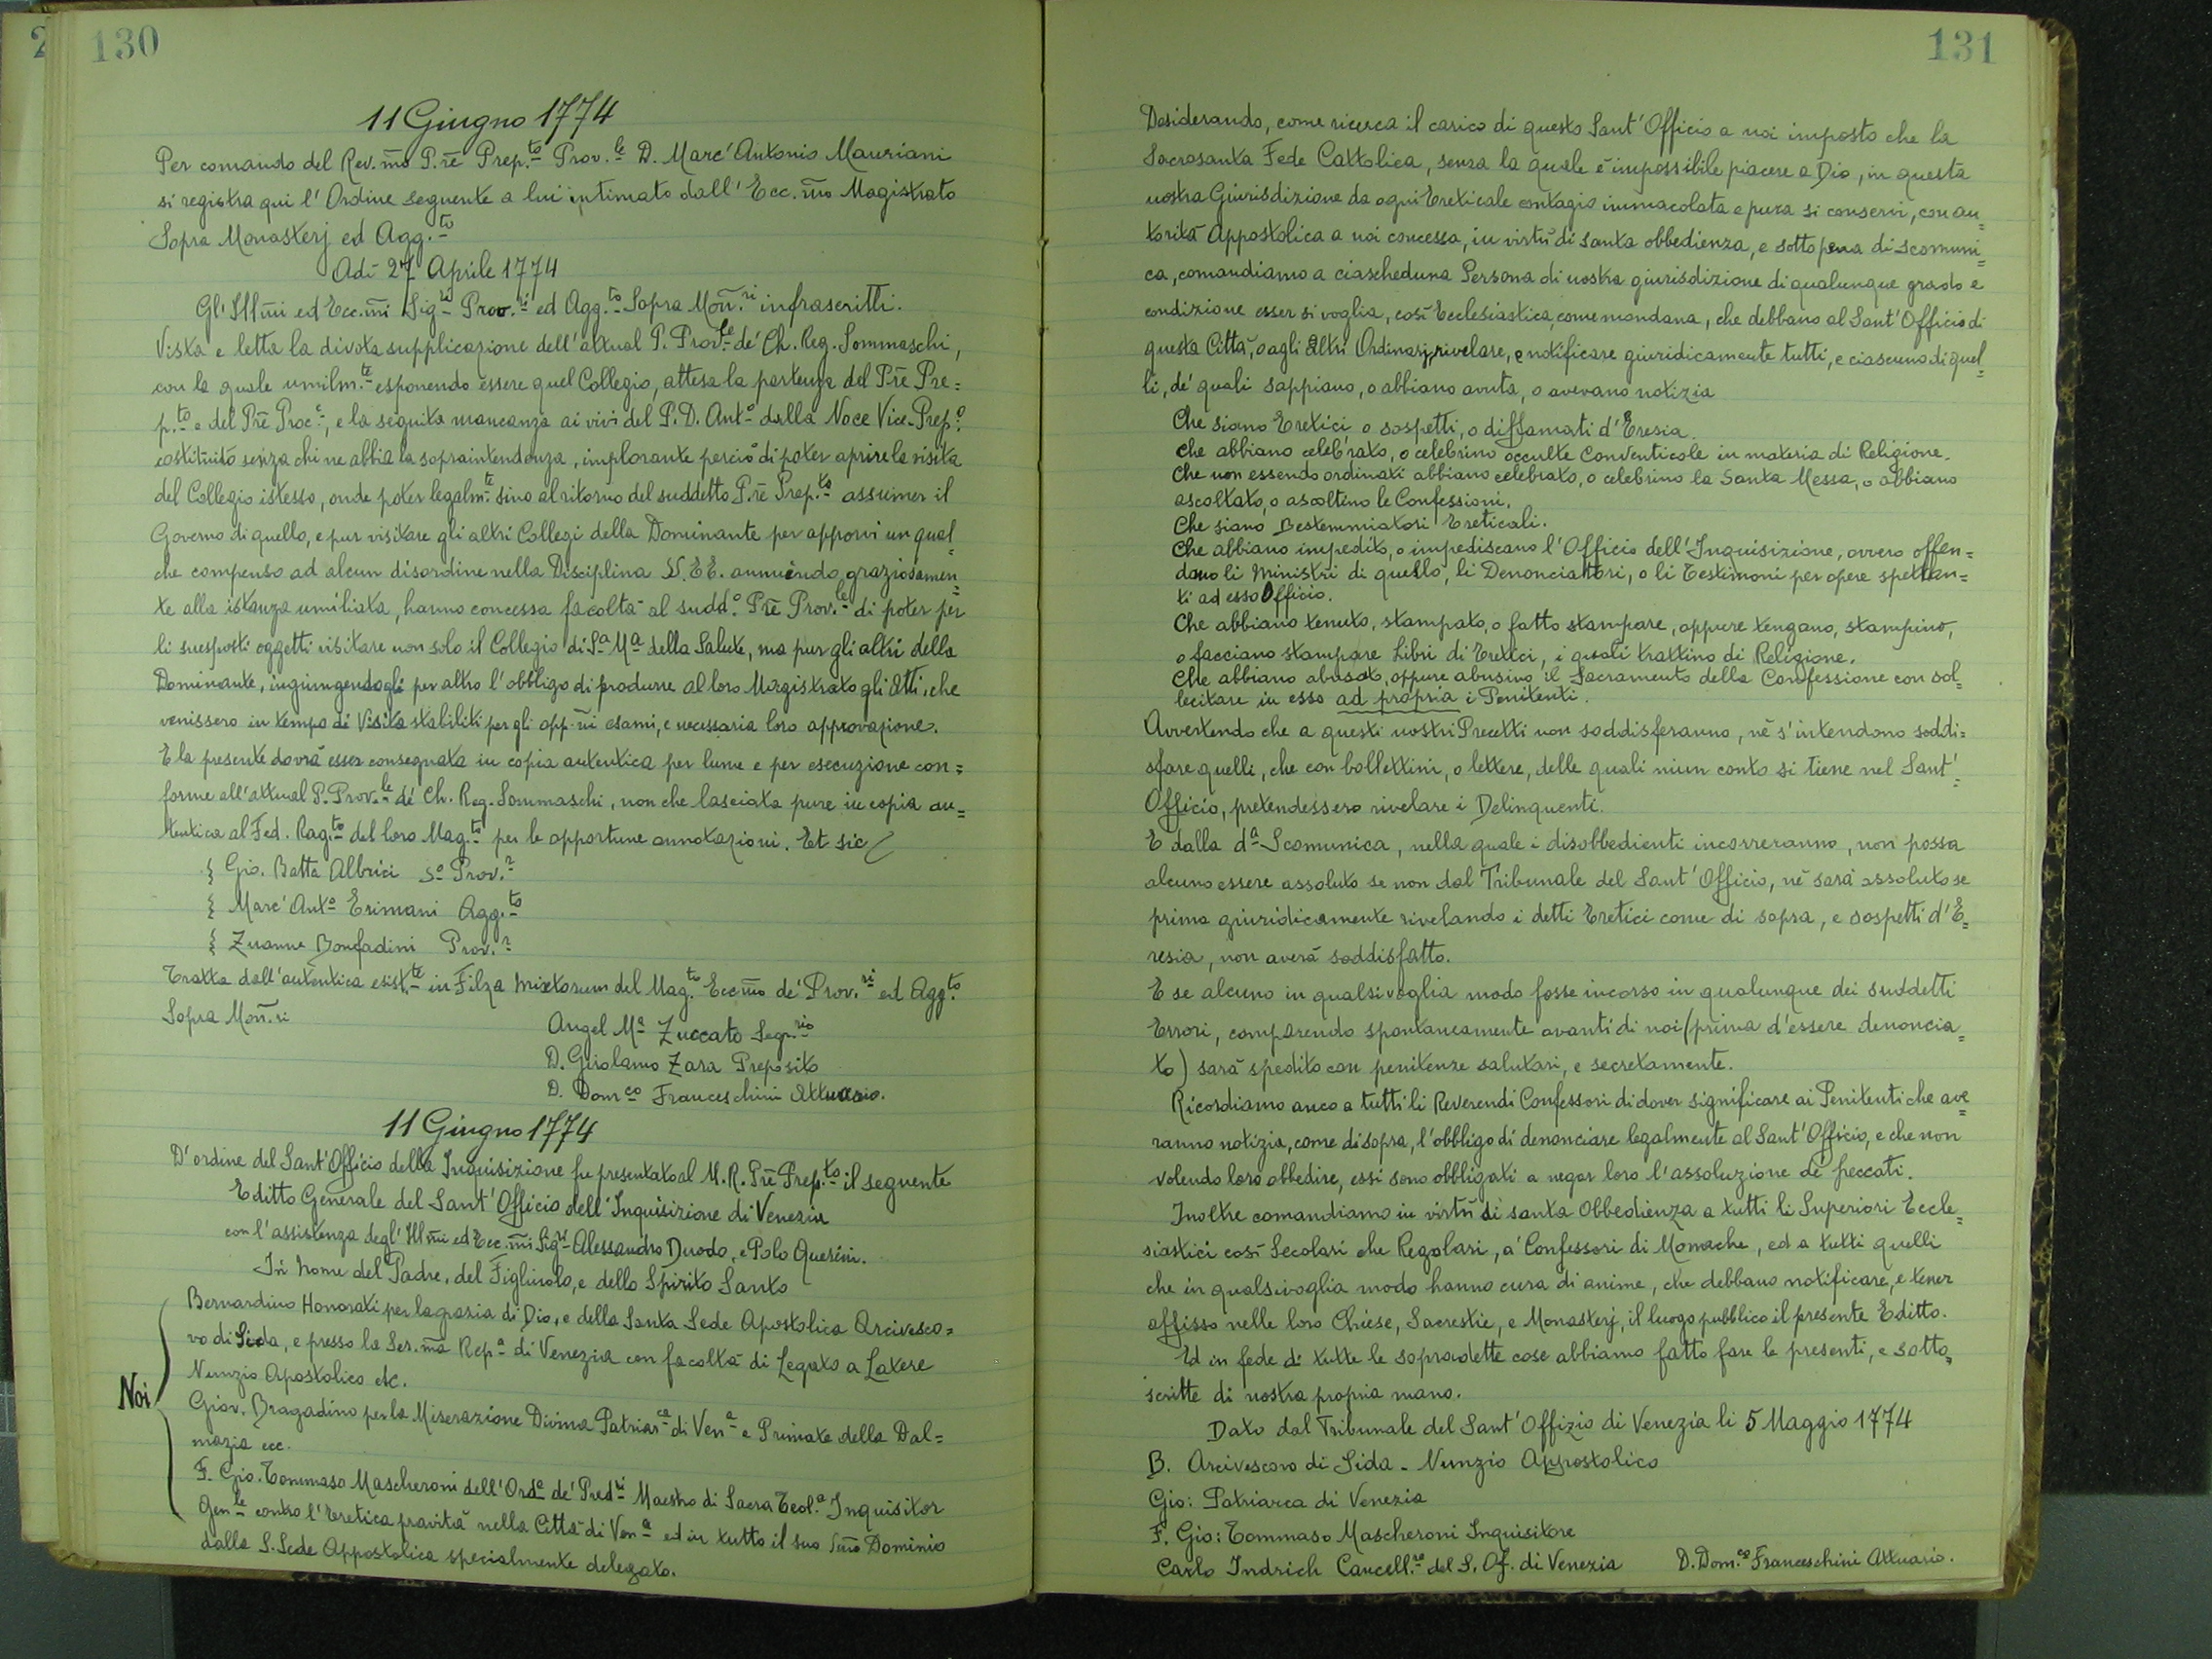 2
130
11 Giugno 1774
Per comando del Rev.mo P.re Prep.to Prov.le D. Marc'Antonio Mauriani
si registra qui l'Ordine seguente a lui intimato dall'Ecc.mo Magistrato
Sopra Monasterj ed Agg.to
Adì 27 Aprile 1774
Gl'Illmi ed Ecc.mi Sig.ri Prov.ri ed Agg.to Sopra Mon.ri infrascritti.
Vista e letta la divota supplicazione dell'attual P. Prov.le de' Ch. Reg. Sommaschi,
con la quale umilm.te esponendo essere quel Collegio, attesa la partenza del Pre Pre=
p.to e del Pre Proc.e, e la seguita mancanza ai vivi del P. D. Ant.o dalla Noce Vice-Prep.o
costituito senza chi ne abbia la sopraintendenza, implorante perciò di poter aprire la visita
del Collegio istesso, onde poter legalm.te sino al ritorno del suddetto P.re Prep.to assumer il
Governo di quello, e pur visitare gli altri Collegi della Dominante per apporvi un qual=
che compenso ad alcun disordine nella Disciplina VV. EE. annuendo graziosamen=
te alla istanza umiliata, hanno concessa facoltà al sudd.o Pre Prov.le di poter per
li suesposti oggetti visitare non solo il Collegio di S.a M.a della Salute, ma pur gli altri della
Dominante, ingiungendogli per altro l'obbligo di produrre al loro Magistrato gli Atti, che
venissero in tempo di Visita stabiliti per gli opp.ni esami, e necessaria loro approvazione.
E la presente dovrà esser consegnata in copia autentica per lume e per esecuzione con=
forme all'attual P. Prov.le de' Ch. Reg. Sommaschi, non che lasciata pure in copia au=
tentica al Fed. Rag.to del loro Mag.to per le opportune annotazioni. Et sic
{ Gio. Batta Albrici S.o Prov.r
{ Marc'Ant.o Erimani Agg.to
{ Zuanne Bonfadini Prov.r
Tratta dall'autentica esist.te in Filza Mixtorum del Mag.to Eccmo de' Prov.ri ed Agg.to
Sopra Mon.ri
Angel M.a Zuccato Segr.rio
D. Girolamo Zara Preposito
D. Dom.co Franceschini Attuario.
11 Giugno 1774
D'ordine del Sant'Officio della Inquisizione fu presentato al M. R. Pre Prep.to il seguente
Editto Generale del Sant'Officio dell'Inquisizione di Venezia
con l'assistenza degl'Illmi ed Ecc.mi Sig.ri Alessandro Duodo, e Polo Querini.
In Nome del Padre, del Figliuolo, e dello Spirito Santo
Bernardino Honorati per la grazia di Dio, e della Santa Sede Apostolica Arcivesco=
vo di Sida, e presso la Ser.ma Rep.a di Venezia con facoltà di Legato a Latere
Nunzio Apostolico etc.
Noi
Giov. Bragadino per la Miserazione Divina Patriar.ca di Ven.a e Primate della Dal=
mazia ecc.
F. Gio. Tommaso Mascheroni dell'Ord.e de' Pred.ri Maestro di Sacra Teol.a Inquisitor
Gen.le contro l'eretica pravità nella Città di Ven.a ed in tutto il suo Smo Dominio
dalla S. Sede Appostolica specialmente delegato.
131
Desiderando, come ricerca il carico di questo Sant'Officio a noi imposto che la
Sacrosanta Fede Cattolica, senza la quale è impossibile piacere a Dio, in questa
nostra Giurisdizione da ogni Ereticale contagio immacolata e pura si conservi, con au=
torità Appostolica a noi concessa, in virtù di santa obbedienza, e sotto pena di scomuni=
ca, comandiamo a ciascheduna Persona di nostra giurisdizione di qualunque grado e
condizione esser si voglia, così Ecclesiastica, come mondana, che debbano al Sant'Officio di
questa Città, o agli Altri Ordinarj, rivelare, e notificare giuridicamente tutti, e ciascuno di quel=
li, de' quali sappiano, o abbiano avuta, o averano notizia
Che siano Eretici o sospetti, o diffamati d'Eresia.
che abbiano celebrato, o celebrino occulte Conventicole in materia di Religione.
Che non essendo ordinati abbiano celebrato, o celebrino la Santa Messa, o abbiano
ascoltato, o ascoltino le Confessioni.
Che siano Bestemmiatori Ereticali.
Che abbiano impedito, o impediscano l'Officio dell'Inquisizione, ovvero offen=
dano li Ministri di quello, li Denonciatori, o li Testimoni per opere spettan=
ti ad esso Officio.
Che abbiano tenuto, stampato, o fatto stampare, oppure tengano, stampino,
o facciano stampare Libri di Eretici, i quali trattino di Religione.
Che abbiano abusato, oppure abusino il Sacramento della Confessione con sol=
lecitare in esso ad propria i Penitenti.
Avvertendo che a questi nostri Precetti non soddisferanno, nè s'intendono soddi=
sfare quelli, che con bollettini, o lettere, delle quali niun conto si tiene nel Sant'=
Officio, pretendessero rivelare i Delinquenti.
E dalla d.a Scomunica, nella quale i disobbedienti incorreranno, non possa
alcuno essere assoluto se non dal Tribunale del Sant'Officio, nè sarà assoluto se
prima giuridicamente rivelando i detti Eretici come di sopra, e sospetti d'E=
resia, non averà soddisfatto.
E se alcuno in qualsivoglia modo fosse incorso in qualunque dei suddetti
Errori, comparendo spontaneamente avanti di noi (prima d'essere denoncia=
to) sarà spedito con penitenze salutari, e secretamente.
Ricordiamo anco a tutti li Reverendi Confessori di dover significare ai Penitenti che ave=
ranno notizia, come di sopra, l'obbligo di denonciare legalmente al Sant'Officio, e che non
volendo loro obbedire, essi sono obbligati a negar loro l'assoluzione de' peccati.
Inoltre comandiamo in virtù di santa Obbedienza a tutti li Superiori Eccle=
siastici così Secolari che Regolari, a' Confessori di Monache, ed a tutti quelli
che in qualsivoglia modo hanno cura di anime, che debbano notificare, e tener
affisso nelle loro Chiese, Sacrestie, e Monasterj, il luogo pubblico il presente Editto.
Ed in fede di tutte le sopradette cose abbiamo fatto fare le presenti, e sotto=
scritte di nostra propria mano.
Dato dal Tribunale del Sant'Offizio di Venezia li 5 Maggio 1774
B. Arcivescovo di Sida - Nunzio Appostolico
Gio: Patriarca di Venezia
F. Gio: Tommaso Mascheroni Inquisitore
Carlo Indrich Cancell.re del S. Of. di Venezia D. Dom.co Franceschini Attuario.